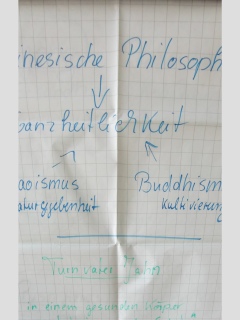 inesische Philosoph
anzheitlierkeit
aoismus Buddhism
aturggebenheit Kultivierung
Turnvater Jahn
in einem gesunden Körper